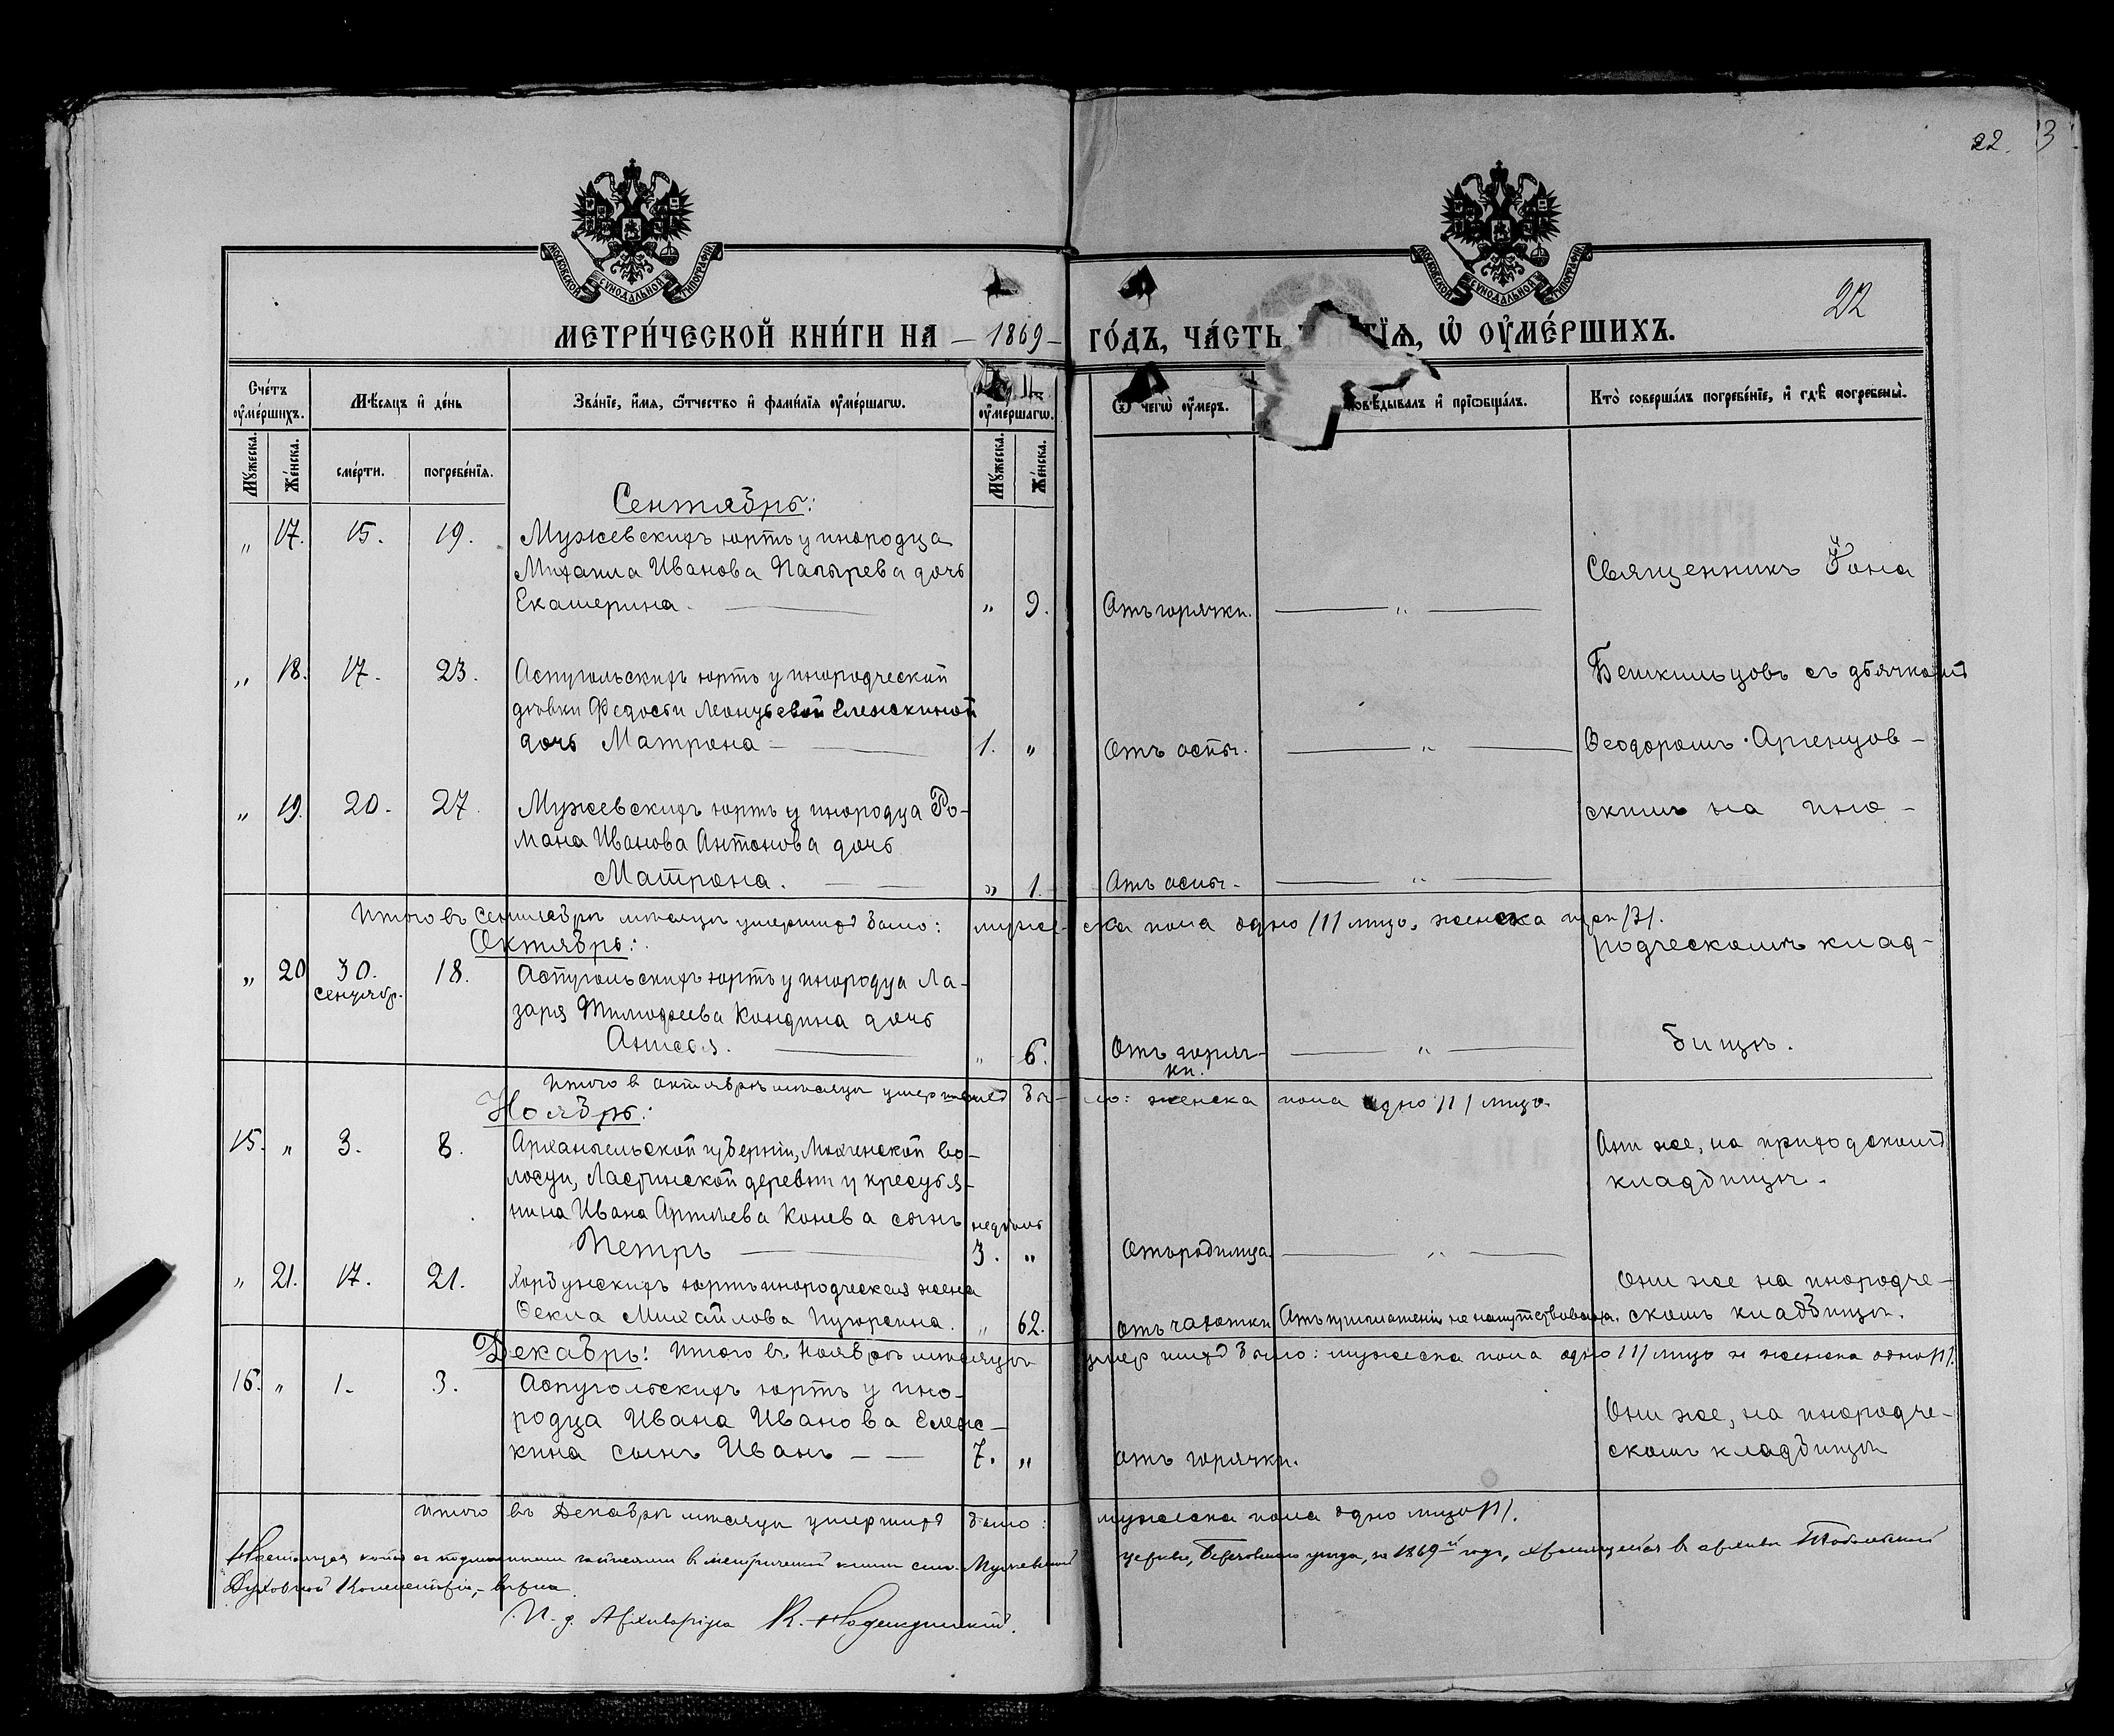 22. 3
22
МОСКОВСКОЙ СУНОДАЛЬНОЙ ТИПОГРАФІИ
МОСКОВСКОЙ СУНОДАЛЬНОЙ ТИПОГРАФІИ
МЕТРИ́ЧЕСКОЙ КНИ́ГИ НА – 1869 – ГО́ДЪ, ЧА́СТЬ ТІѦ, Ѡ҆ ОУ҆МЕ́РШИХЪ.
Сче́тъ оу҆ме́ршихъ.
Мѣ́сяцъ и҆ де́нь
Зва́нїе, и҆́мя, ѻ҆́тчество и҆ фами́лїя оу҆ме́ршагѡ.
оу҆ме́ршагѡ.
Ѿ чегѡ̀ оу҆́меръ.
повѣ́дывалъ и҆ прїѡбща́лъ.
Кто̀ соверша́лъ погребе́нїе, и҆ гдѣ̀ погребены̀.
Мꙋ́жеска.
Же́нска.
сме́рти.
погребе́нїя.
Мꙋ́жеска.
Же́нска.
Сентябрь:
„ 17. 15. 19. Мужевскихъ юртъ у инородца
Михаила Иванова Папырева дочь
Екатерина. „ 9. Отъ горячки. „
Священникъ Іона
„ 18. 17. 23. Аспугольскихъ юртъ у инородческой
дѣвки Федосьи Леонтьевой Еленскиной
дочь Матрона 1. „ Отъ оспы. „
Бешкильцовъ съ дьячкомъ
Ѳеодоромъ Аргенцов-
„ 19. 20. 27. Мужевскихъ юртъ у инородца Ро-
мана Иванова Антонова дочь
Матрона. „ 1. Отъ оспы. „
скимъ на ино-
Итого въ Сентябрѣ мѣсяцѣ умершихъ было: муже-ска пола одно /1/ лицо, женска три /3/.
Октябрь:
родческомъ клад-
„ 20 30. сентябр. 18. Аспугольскихъ юртъ у инородца Ла-
заря Тимофеева Кондина дочь
Анисья. „ 6. Отъ горяч-
ки. „
бищѣ.
Итого в октябрѣ мѣсяцѣ умершихъ бы-ло: женска пола одно /1/ лицо.
Ноябрь:
15. „ 3. 8. Архангельской губерніи, Мохченской во-
лости, Ластинской деревни у крестья-
нина Ивана Артіева Конева сынъ недѣль
Петръ 3. „ Отъ родимца. „
Они же, на приходскомъ
кладбищѣ.
„ 21. 17. 21. Хорбунскихъ юртъ инородческая жена
Ѳекла Михайлова Пугорсина. „ 62. Отъ чахотки
Они же на инородче-
скомъ кладбищѣ.
Декабрь: Итого въ Ноябрѣ мѣсяцѣ умершихъ было: мужеска пола одно /1/ лицо и женска одно /1/.
16. „ 1. 3. Аспугольскихъ юртъ у ино-
родца Ивана Иванова Еленс-
кина сынъ Иванъ 7. „ отъ горячки.
Они же, на инородче-
скомъ кладбищѣ
Итого въ Декабрѣ мѣсяцѣ умершихъ было: мужеска пола одно лицо /1/.
Настоящая копія съ подлинными записями в метрической книгѣ села Мужевской церкви, Березовскаго уѣзда, за 1869-й годъ, хранящейся в архивѣ Тобольской
Духовной Консисторіи, – вѣрна.
И. д. Архиваріуса К. Надеждинскій.